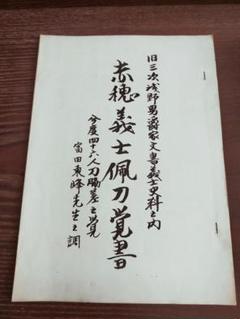 旧三次浅野男爵家文書義士史料之内
赤穂義士佩刀覚書
分度四十六人刀脇差之覚
富田東峰先生之調